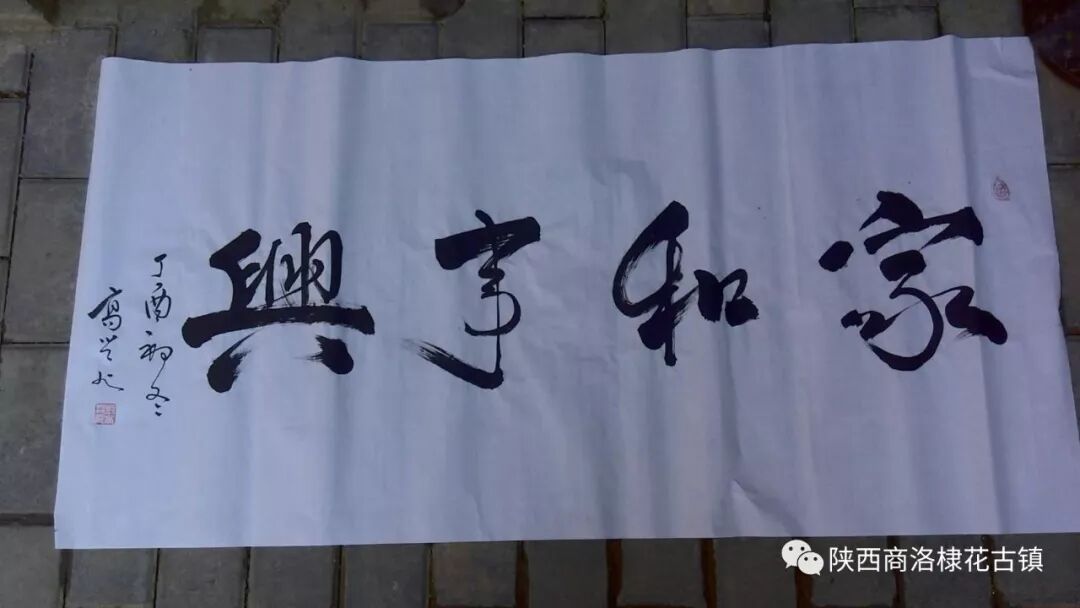 家和事興
丁酉初冬
陕西商洛棣花古镇